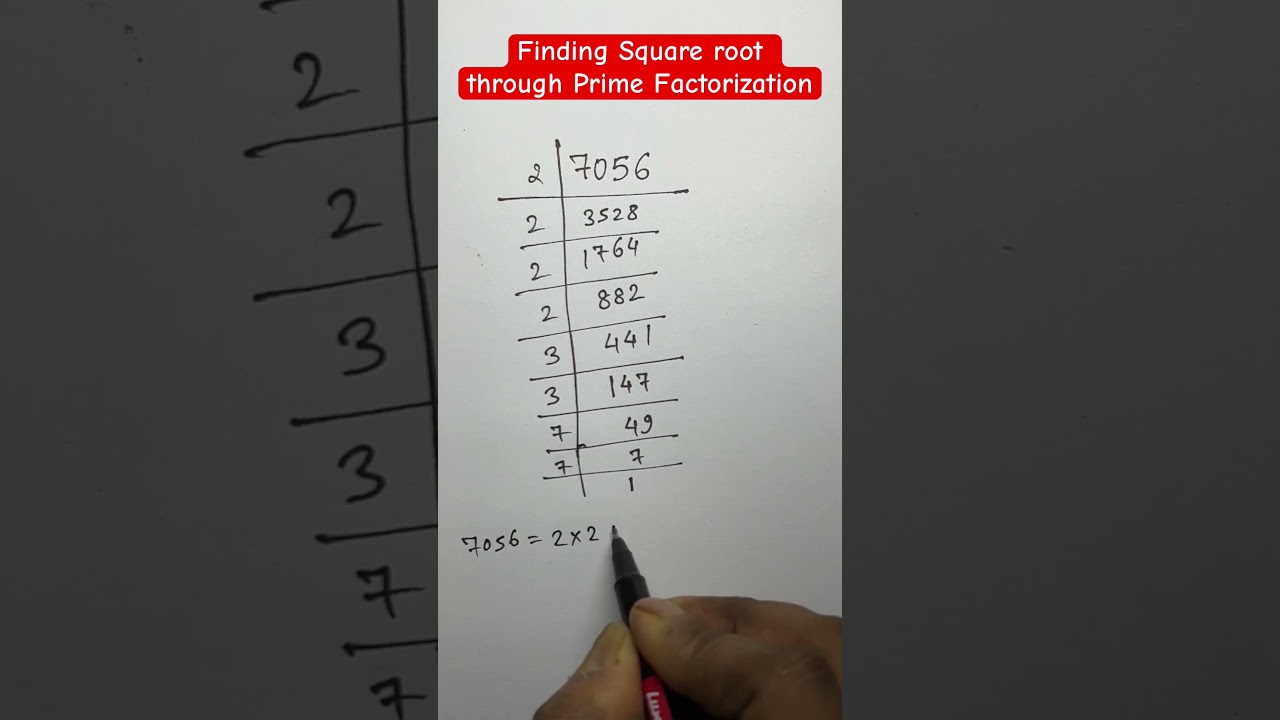 Finding Square root
through Prime Factorization
2 7056
2 3528
2 1764
2 882
3 441
3 147
7 49
7 7
1
7056 = 2 × 2
2
2
3
3
7
7